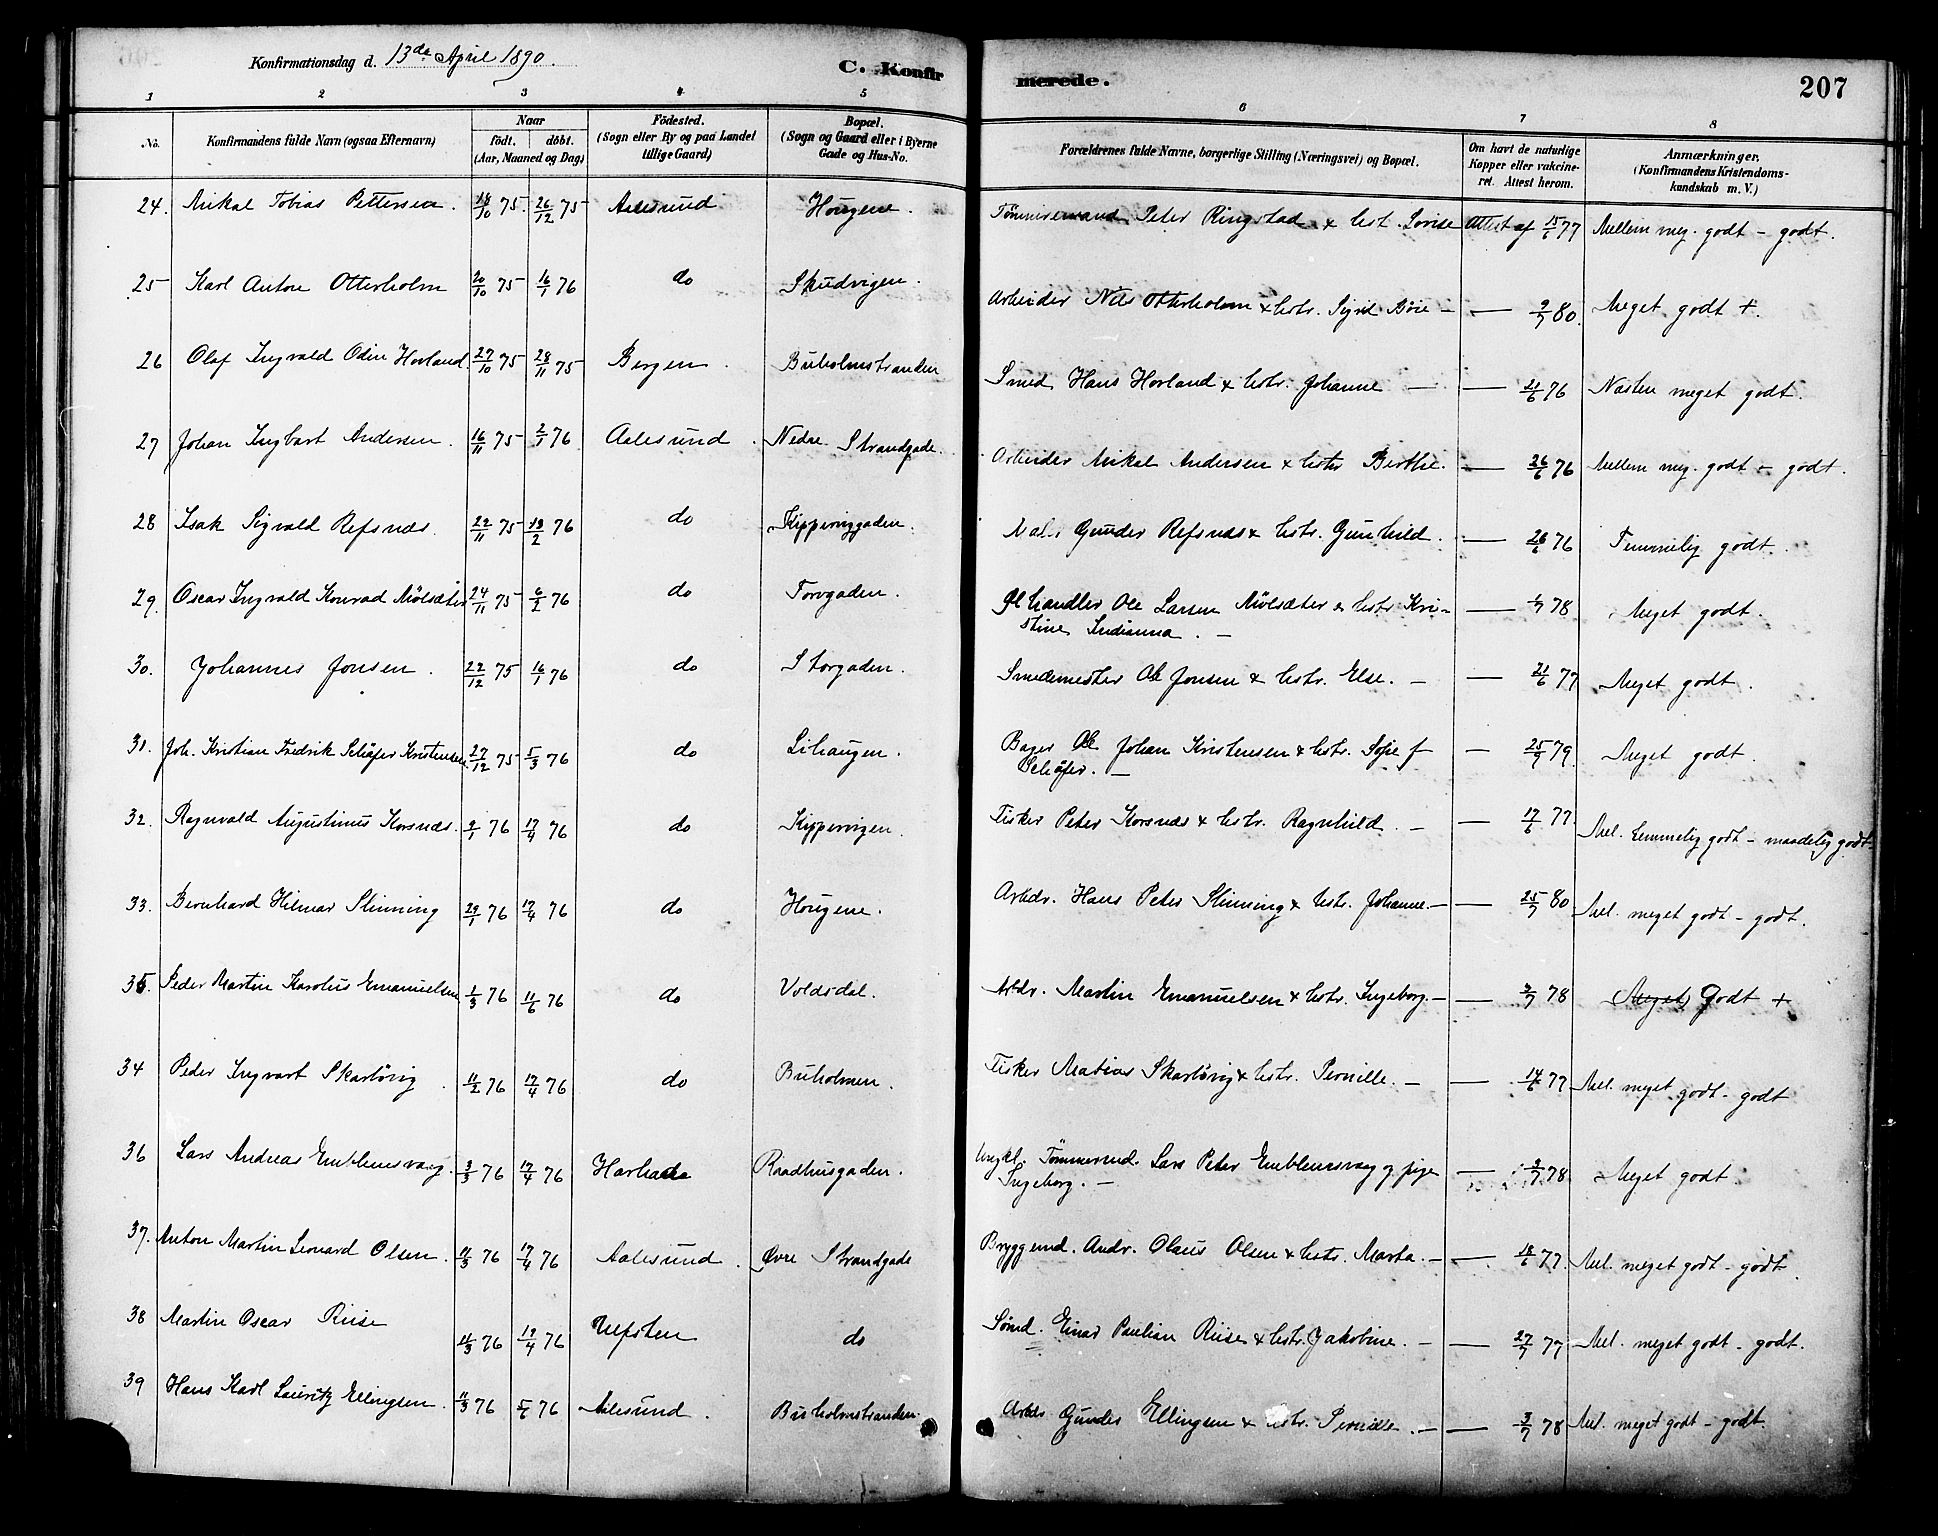 Konfirmationsdag d. 13de April 1890.
C. Konfirmerede.
207
1 2 3 4 5 6 7 8
No.
Konfirmandens fulde Navn (ogsaa Efternavn)
Naar
födt. döbt.
(Aar, Maaned og Dag)
Födested.
(Sogn eller By og paa Landet
tillige Gaard)
Bopæl.
(Sogn og Gaard eller i Byerne
Gade og Hus-No.
Forældrenes fulde Navne, borgerlige Stilling (Næringsvei) og Bopæl.
Om havt de naturlige
Kopper eller vakcine-
ret. Attest herom.
Anmærkninger.
(Konfirmandens Kristendoms-
kundskab m. V.)
24. Mikal Tobias Pettersen. 18/10 75. 26/12 75 Aalesund Hougene. Tömmermand Peter Ringstad & hst. Lovise Attest af 15/6 77 Mellem meg. godt - godt.
25 Karl Anton Otterholm 20/10 75 16/1 76 do Skudvigen. Arbeider Nils Otterholm & hstr. Sigrid Böie - — 9/7 80. Meget godt +.
26 Olaf Ingvald Odin Hovland. 27/10 75 28/11 75 Bergen. Buholmstranden Smed Hans Hovland & hstr. Johanne — — 21/6 76 Næsten meget godt.
27 Johan Ingbart Andersen. 16/11 75 2/1 76 Aalesund. Nedre Strandgade. Arbeider Mikal Andersen & hstr Berthe. — 26/6 76 Mellem meg. godt - godt.
28 Isak Sigvald Refsnæs. 22/11 75 13/2 76 do Kipperviggaden. Maler Gunder Refsnæs & hstr. Gunhild. — 26/6 76 Temmelig godt.
29. Oscar Ingvald Konrad Mölsæter 24/11 75 6/2 76 do Torvgaden. Ölhandler Ole Larsen Mölsæter & hstr Kri-
stine Indianna. — — 1/7 78 Meget godt.
30. Johannes Jonsen. 22/12 75 16/1 76 do Storgaden. Smedemester Ole Jonsen & hstr. Else. — — 21/6 77 Meget godt.
31. Joh. Kristian Fredrik Schäfer Kristensen. 27/12 75 5/3 76 do Lihaugen. Bager Ole Johan Kristensen & hstr. Sofie f
Schäfer. — — 25/9 79 Meget godt.
32. Ragnvald Augustinus Korsnæs. 9/1 76 17/4 76 do Kippervigen. Fisker Peter Korsnæs & hstr. Ragnhild. — — 17/6 77 Mel. temmelig godt - maadelig godt.
33. Bernhard Hilmar Slinning 29/1 76 17/4 76 do Hougene. Arbdr. Hans Peter Slinning & hstr. Johanne. — — 25/7 80 Mel. meget godt - godt.
35. Peder Martin Karolus Emanuelsen 1/3 76 11/6 76 do Voldsdal. Arbdr. Martin Emanuelsen & hstr. Ingeborg. — — 2/7 78 (Meget) Godt +
34 Peder Ingvart Skarbövig. 11/2 76 17/4 76 do Buholmen. Fisker Matias Skarbövig & hstr. Pernille. — — 17/6 77 Mel. meget godt - godt
36 Lars Andreas Emblemsvaag. 3/3 76 17/4 76 Harham Raadhusgaden. Ungkl. Tömmermd. Lars Peter Emblemsvaag og pige
Ingeborg. — — 9/7 78 Meget godt
37. Anton Martin Leonard Olsen. 11/3 76 17/4 76 Aalesund. Övre Strandgade Bryggemd. Andr. Olaus Olsen & hstr. Marta. — — 18/6 77. Mel. meget godt - godt.
38 Martin Oscar Riise 11/3 76 19/4 76 Ulfsten do Sömd. Einar Paulian Riise & hstr. Jakobine. — — 27/7 77 Mel. meget godt - godt.
39 Hans Karl Lauritz Ellingsen. 11/3 76 5/6 76 Aalesund. Buholmstranden. Arbdr. Gunder Ellingsen & hstr. Pernille. — — 3/7 78 Mel. meget godt - godt.